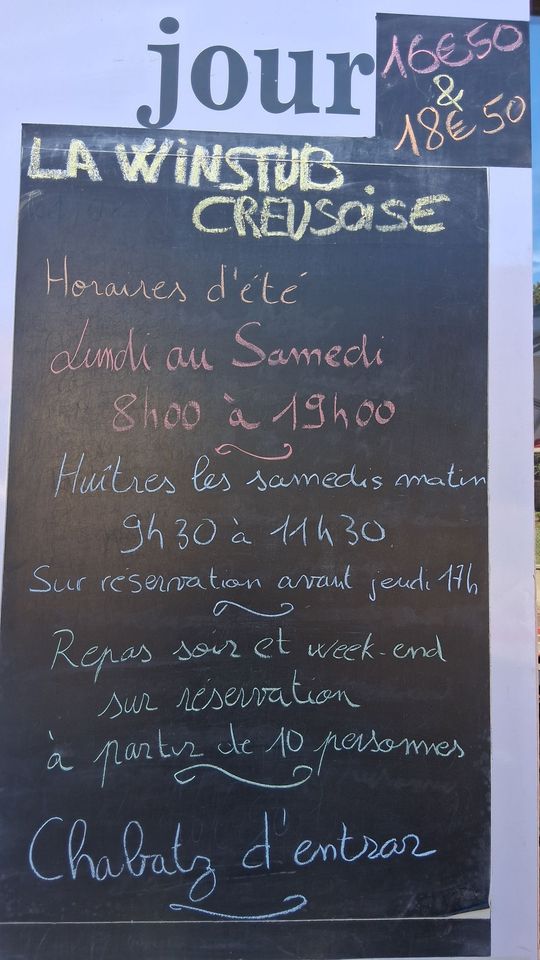 jour
16€50
&
18€50
LA WINSTUB
CREUSOISE
Horaires d'été
Lundi au Samedi
8h00 à 19h00
Huîtres les samedis matin
9h30 à 11h30
Sur réservation avant jeudi 17h
Repas soir et week-end
sur réservation
à partir de 10 personnes
Chabatz d'entrar